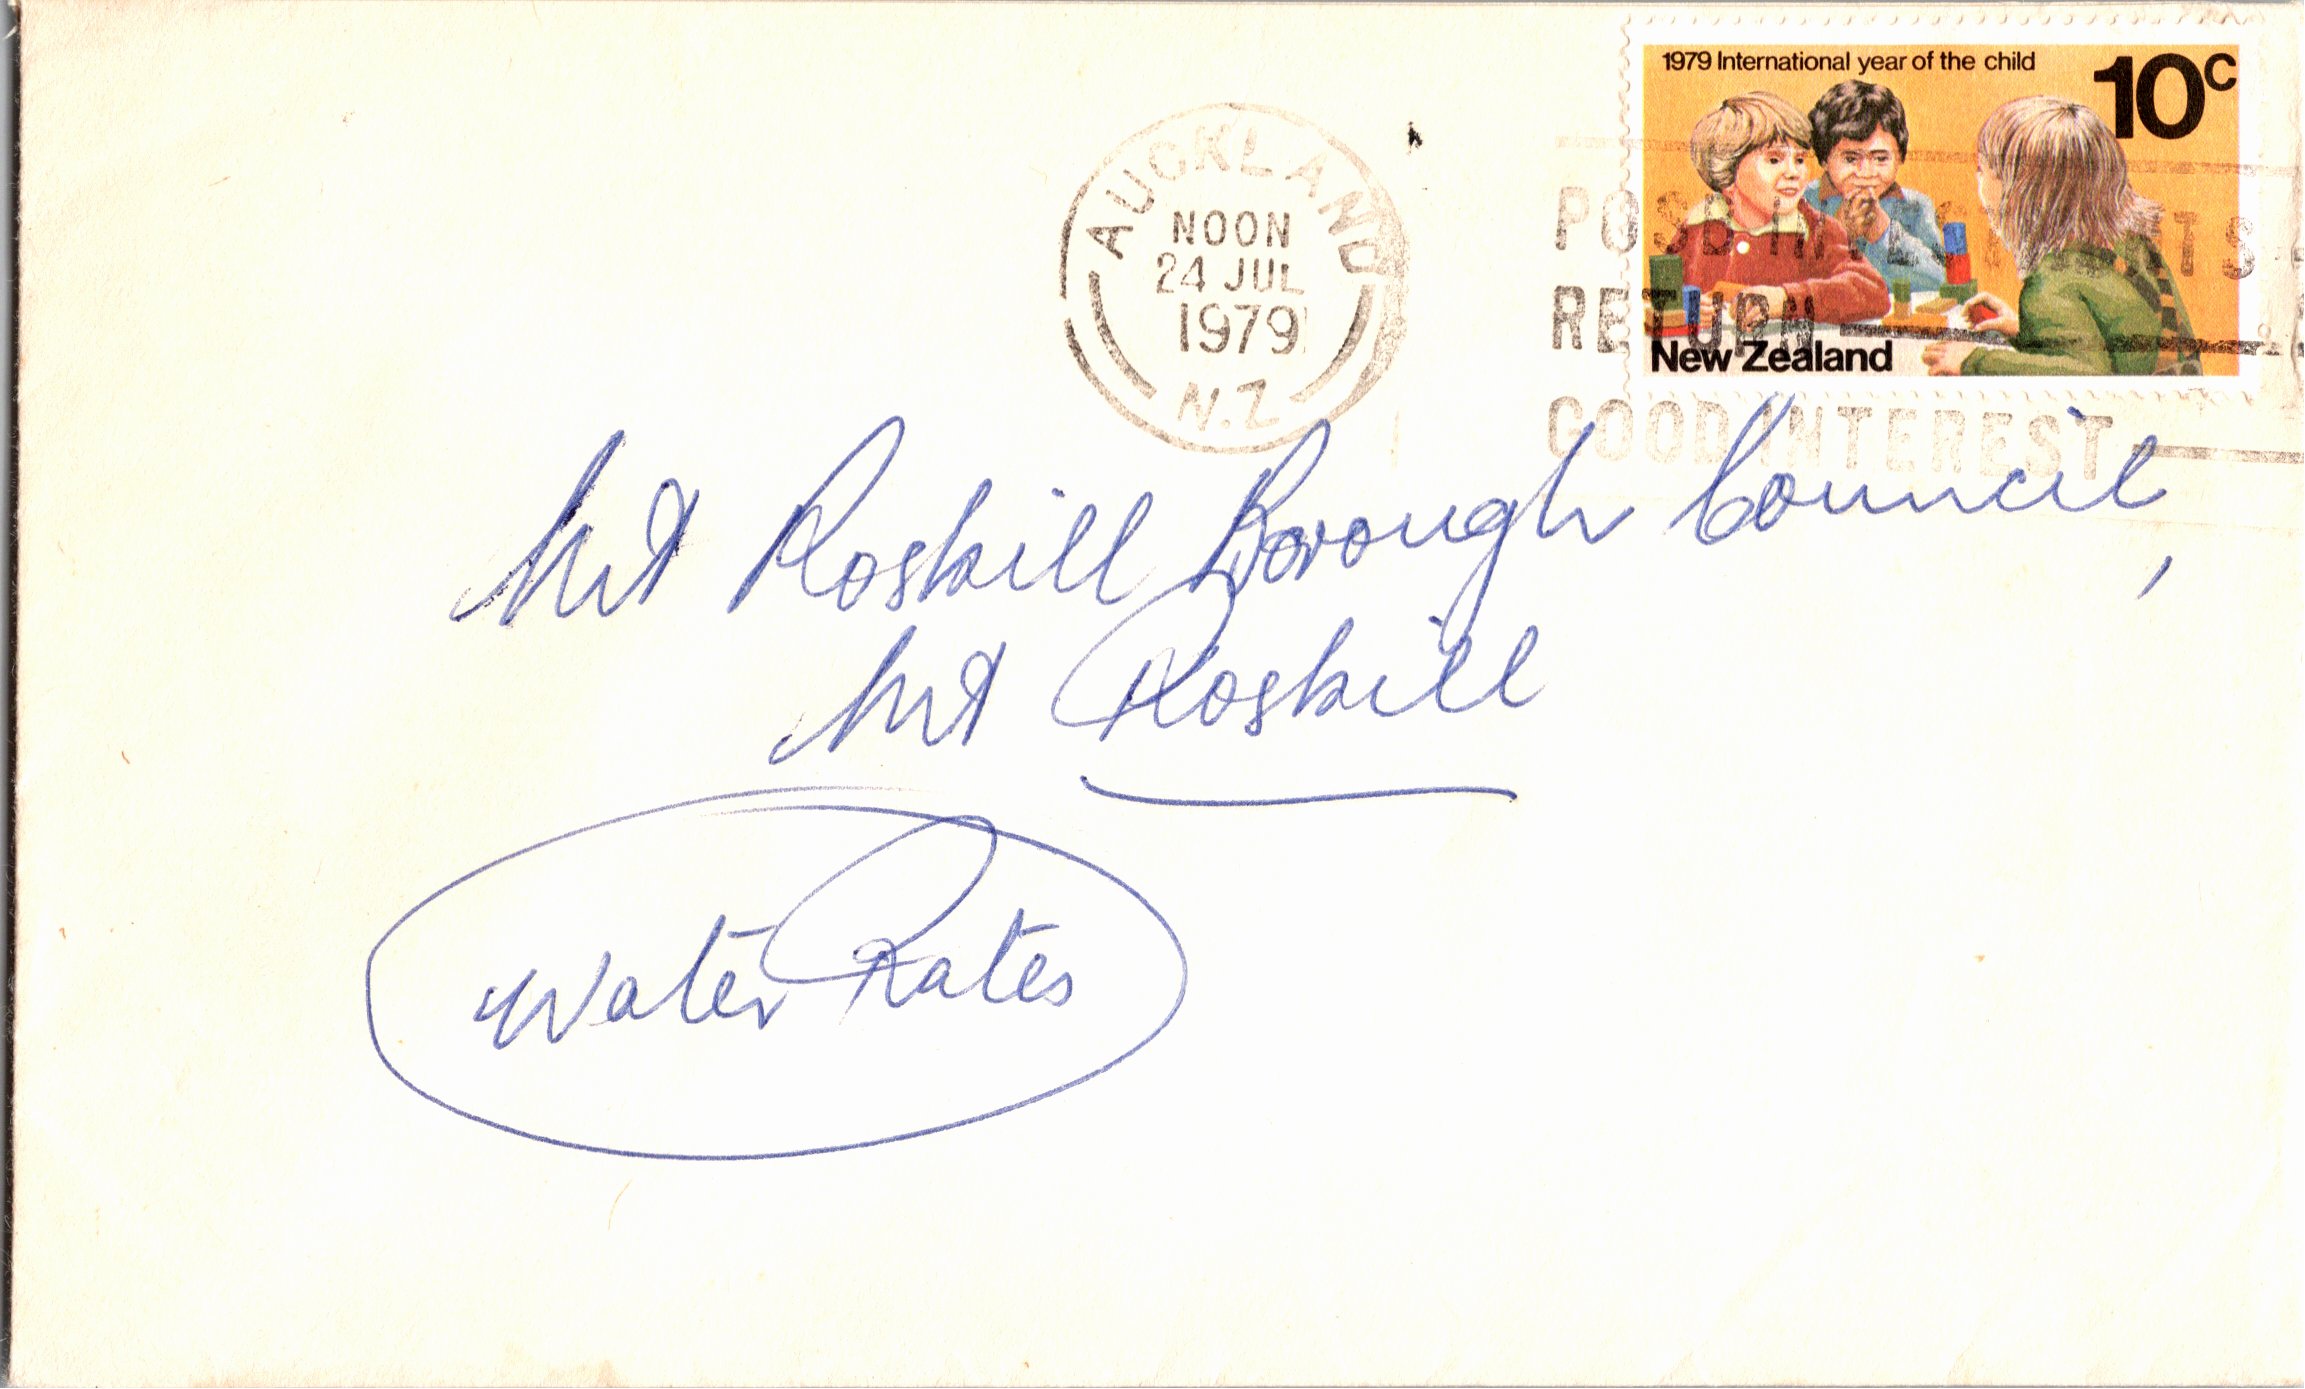 1979 International year of the child
10c
New Zealand
AUCKLAND
NOON
24 JUL
1979
N.Z
RETURN
GOOD INTEREST
Mt Roskill Borough Council,
Mt Roskill
Water Rates